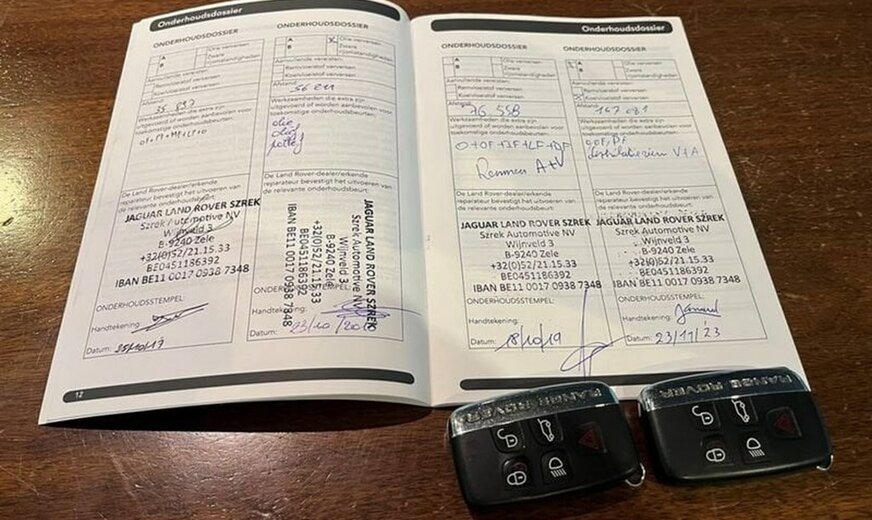 Onderhoudsdossier
ONDERHOUDSDOSSIER
A
B
Olie verversen
Zware rijomstandigheden
Aanvullende vereisten:
Remvloeistof verversen
Koelvloeistof verversen
Afstand:
Werkzaamheden die extra zijn
uitgevoerd of worden aanbevolen voor
toekomstige onderhoudsbeurten:
De Land Rover-dealer/erkende
reparateur bevestigt het uitvoeren van
de relevante onderhoudsbeurt.
JAGUAR LAND ROVER SZREK
Szrek Automotive NV
Wijnveld 3
B-9240 Zele
+32(0)52/21.15.33
BE0451186392
IBAN BE11 0017 0938 7348
ONDERHOUDSSTEMPEL:
Handtekening:
Datum: 25/10/17
12
ONDERHOUDSDOSSIER
A
B
X
Olie verversen
Zware rijomstandigheden
Aanvullende vereisten:
Remvloeistof verversen
Koelvloeistof verversen
Afstand: 56 211
Werkzaamheden die extra zijn
uitgevoerd of worden aanbevolen voor
toekomstige onderhoudsbeurten:
olie
De Land Rover-dealer/erkende
reparateur bevestigt het uitvoeren van
de relevante onderhoudsbeurt.
JAGUAR LAND ROVER SZREK
Szrek Automotive NV
Wijnveld 3
B-9240 Zele
+32(0)52/21.15.33
BE0451186392
IBAN BE11 0017 0938 7348
ONDERHOUDSSTEMPEL:
Handtekening:
Datum: 23/10
Onderhoudsdossier
ONDERHOUDSDOSSIER
A
B
Olie verversen
Zware
rijomstandigheden
Aanvullende vereisten:
Remvloeistof verversen
Koelvloeistof verversen
Afstand: 76 558
Werkzaamheden die extra zijn
uitgevoerd of worden aanbevolen voor
toekomstige onderhoudsbeurten:
O+OF+IF+LF+DF
Remmen A+V
De Land Rover-dealer/erkende
reparateur bevestigt het uitvoeren van
de relevante onderhoudsbeurt.
JAGUAR LAND ROVER SZREK
Szrek Automotive NV
Wijnveld 3
B-9240 Zele
+32(0)52/21.15.33
BE0451186392
IBAN BE11 0017 0938 7348
ONDERHOUDSSTEMPEL:
Handtekening:
Datum: 18/10/19
ONDERHOUDSDOSSIER
A
B
Olie verversen
Zware
rijomstandigheden
Aanvullende vereisten:
Remvloeistof verversen
Koelvloeistof verversen
Afstand:
Werkzaamheden die extra zijn
uitgevoerd of worden aanbevolen voor
toekomstige onderhoudsbeurten:
V+A
De Land Rover-dealer/erkende
reparateur bevestigt het uitvoeren van
de relevante onderhoudsbeurt.
JAGUAR LAND ROVER SZREK
Szrek Automotive NV
Wijnveld 3
B-9240 Zele
+32(0)52/21.15.33
BE0451186392
IBAN BE11 0017 0938 7348
ONDERHOUDSSTEMPEL:
Handtekening:
Datum: 23/11/23
RANGE ROVER
RANGE ROVER